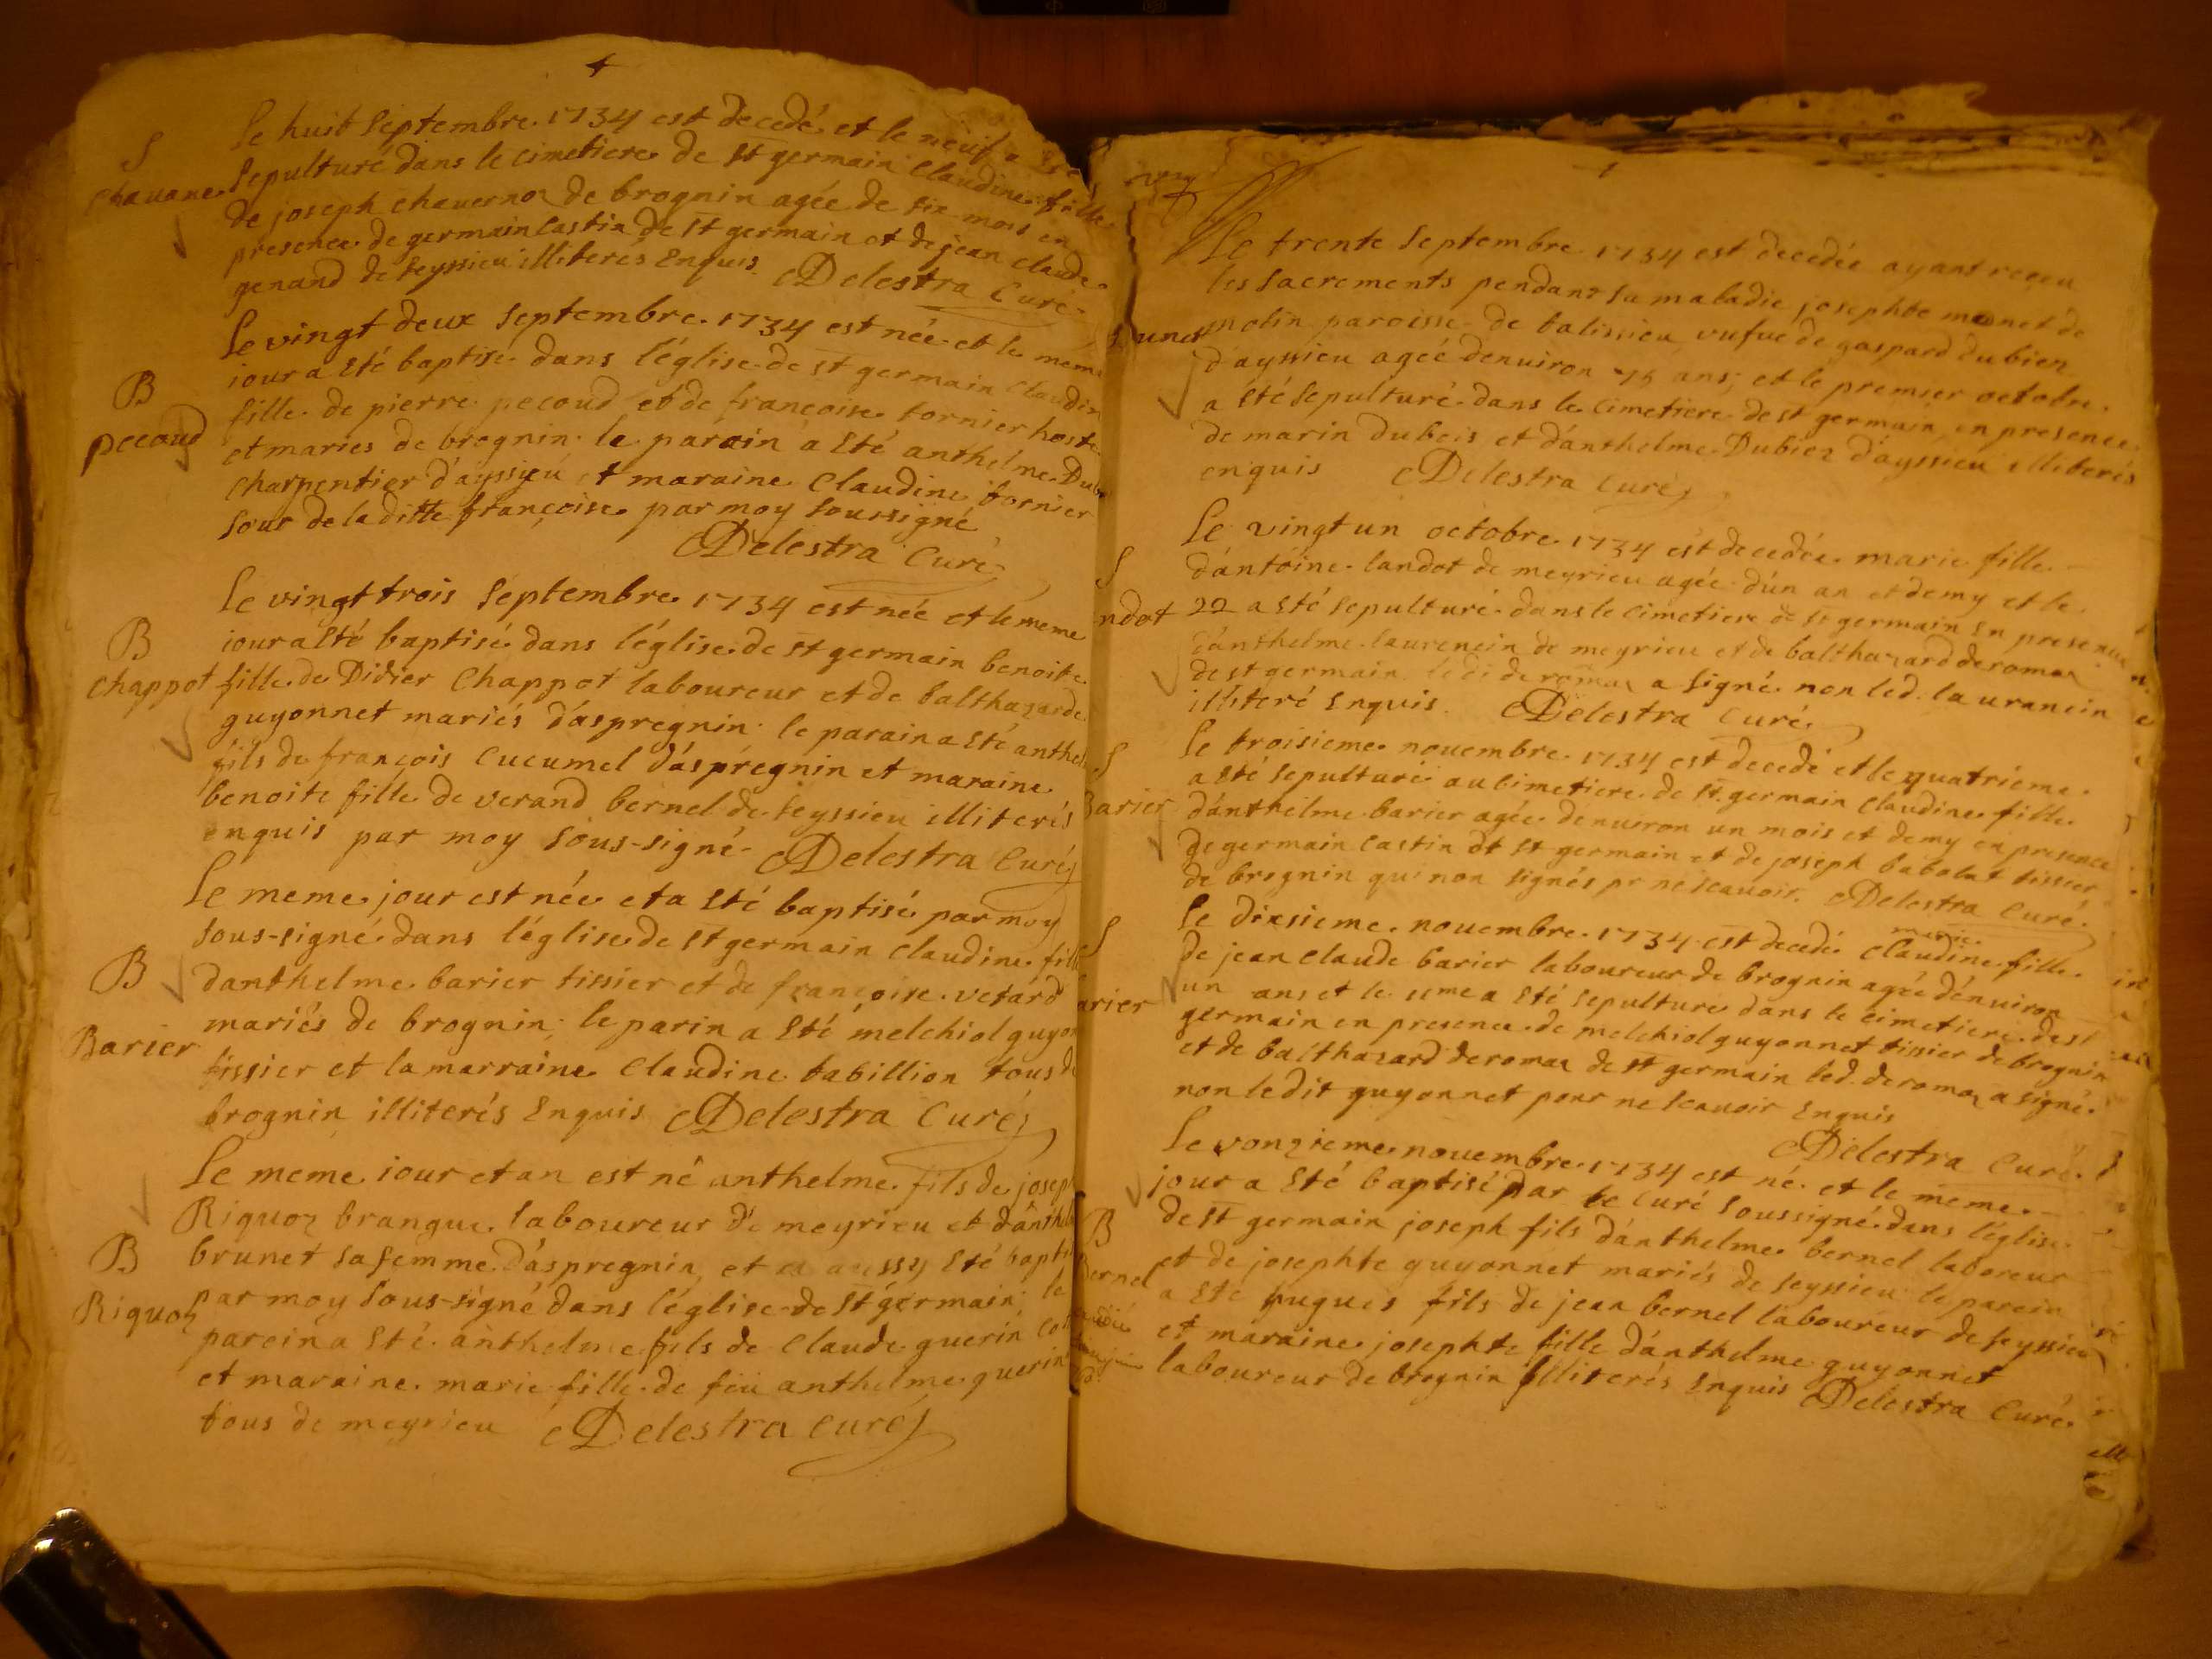 S
chauane
Le huit septembre 1734 est decedé et le neuf a
sepulturé dans le cimetiere de st germain claudine fille
de joseph chauernoz de brognin agée de six mois en
presence de germain castin de st germain et de jean claude
genand de seyssieu illiterés enquis Delestra curé
B
pecoud
Le vingt deux septembre 1734 est née et le meme
iour a eté baptisé dans l'église de st germain claudin
fille de pierre pecoud et de françoise tornier hoste
et mariés de brognin le parain a eté anthelme Dub
charpentier d'ayssieu et maraine claudine tornier
sour de la ditte françoise par moy soussigné
Delestra curé
B
chappot
Le vingt trois septembre 1734 est née et le meme
iour a eté baptisé dans l'église de st germain benoite
fille de Didier Chappot laboureur et de balthazarde
guyonnet mariés d'aspregnin le parain a eté anthel
fils de françois cucumel d'aspregnin et maraine
benoite fille de verand bernel de seyssieu illiterés
enquis par moy sous-signé Delestra curé
B
Barier
Le meme jour est née et a eté baptisé par moy
sous-signé dans l'église de st germain claudine fille
danthelme barier tissier et de françoise vetard
mariés de brognin le parin a eté melchiol guyon
tissier et la marraine claudine babillion tous de
brognin illiterés enquis Delestra curé
B
Riquoz
Le meme iour et an est né anthelme fils de josep
Riquoz brangue laboureur de meyrieu et d'anthel
brunet sa femme d'aspregnin et a aussy eté bapti
par moy sous-signé dans l'église de st germain le
parein a eté anthelme fils de claude guerin
et maraine marie fille de feu anthelme guerin
tous de meyrieu Delestra curé
Le trente septembre 1734 est decedée ayant receu
les sacrements pendant sa maladie josephte monet de
molin paroisse de talissieu vufue de gaspard dubien
d'ayssieu ageé denuiron 75 ans; et le premier octobre
a eté sepulturé dans le cimetiere de st germain en presence
de marin dubois et d'anthelme Dubiez d'ayssieu illiterés
enquis Delestra curé
S
ndot
Le vingt un octobre 1734 est decedée marie fille
d'antoine landot de meyrieu agée d'un an et demy et le
22 a eté sepulturé dans le cimetiere de st germain en presence
d'anthelme laurencin de meyrieu et de balthazard deromaz
de st germain ledi deromaz a signé non led. laurancin
illiteré enquis Delestra curé
S
Barier
Le troisieme nouembre 1734 est decedé et le quatriéme
a eté sepulturé au cimetiere de st germain claudine fille
d'anthelme barier agée denuiron un mois et demy en presence
de germain castin de st germain et de joseph babolat tissier
de brognin qui non signés pr ne scauoir Delestra curé
S
arier
Le dixsieme nouembre 1734 est decedé claudine marie fille
de jean claude barier laboureur de brognin agée d'enuiron
un ans et le a eté sepulture dans le cimetiere de st
germain en presence de melchiol guyonnet tissier de brognin
et de balthazard deromaz de st germain led. deromaz a signé
non ledit guyonnet pour ne scauoir enquis
Delestra curé
B
Bernel
Le vonzieme nouembre 1734 est né et le meme
jour a eté baptisé par le curé soussigné dans l'église
de st germain joseph fils d'anthelme bernel laboreur
et de josephte guyonnet mariés de seyssieu le parein
a ete hugues fils de jean bernel laboureur de seyssieu
et maraine josephte fille d'anthelme guyonnet
laboureur de brognin illiterés enquis Delestra curé